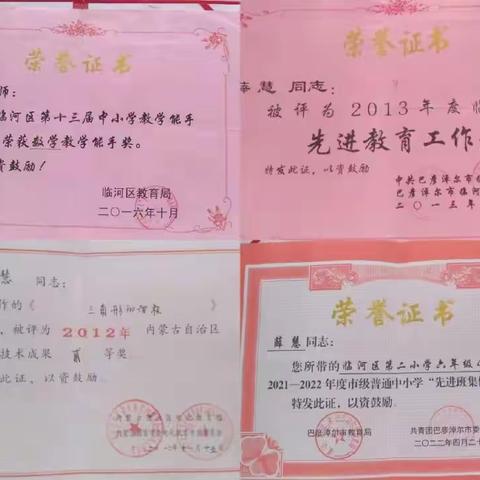 荣誉证书
师：
临河区第十三届中小学教学能手
荣获数学教学能手奖。
资鼓励！
临河区教育局
二〇一六年十月
荣誉证书
薛慧 同志：
被评为2013年度临
先进教育工作
特发此证，以资鼓励
中共巴彦淖尔市
巴彦淖尔市临河
二〇一三年
慧 同志：
作的《三角形的
，被评为2012年 内蒙古自治区
技术成果 贰 等奖。
此证，以资鼓励。
荣誉证书
薛慧同志：
您所带的临河区第二小学六年级
2021—2022年度市级普通中小学“先进班集
特发此证，以资鼓励。
巴彦淖尔市教育局
共青团巴彦淖尔市委
二〇二二年四月二十